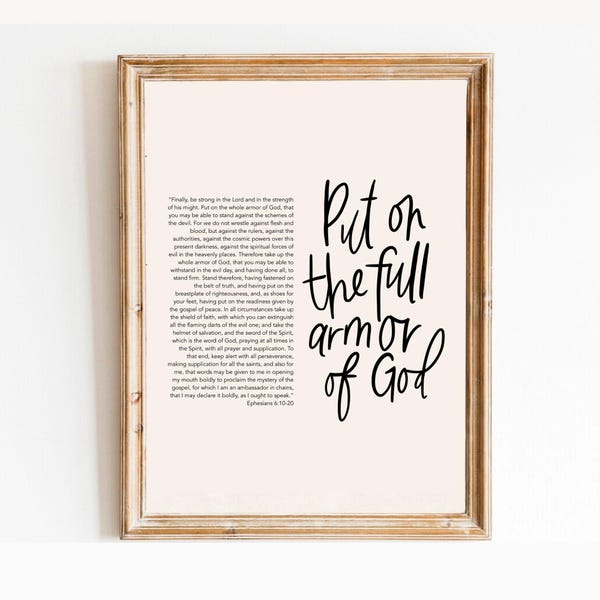 "Finally, be strong in the Lord and in the strength
of his might. Put on the whole armor of God, that
you may be able to stand against the schemes of
the devil. For we do not wrestle against flesh and
blood, but against the rulers, against the
authorities, against the cosmic powers over this
present darkness, against the spiritual forces of
evil in the heavenly places. Therefore take up the
whole armor of God, that you may be able to
withstand in the evil day, and having done all, to
stand firm. Stand therefore, having fastened on
the belt of truth, and having put on the
breastplate of righteousness, and, as shoes for
your feet, having put on the readiness given by
the gospel of peace. In all circumstances take up
the shield of faith, with which you can extinguish
all the flaming darts of the evil one; and take the
helmet of salvation, and the sword of the Spirit,
which is the word of God, praying at all times in
the Spirit, with all prayer and supplication. To
that end, keep alert with all perseverance,
making supplication for all the saints, and also for
me, that words may be given to me in opening
my mouth boldly to proclaim the mystery of the
gospel, for which I am an ambassador in chains,
that I may declare it boldly, as I ought to speak."
Ephesians 6:10-20
Put on
the full
armor
of God